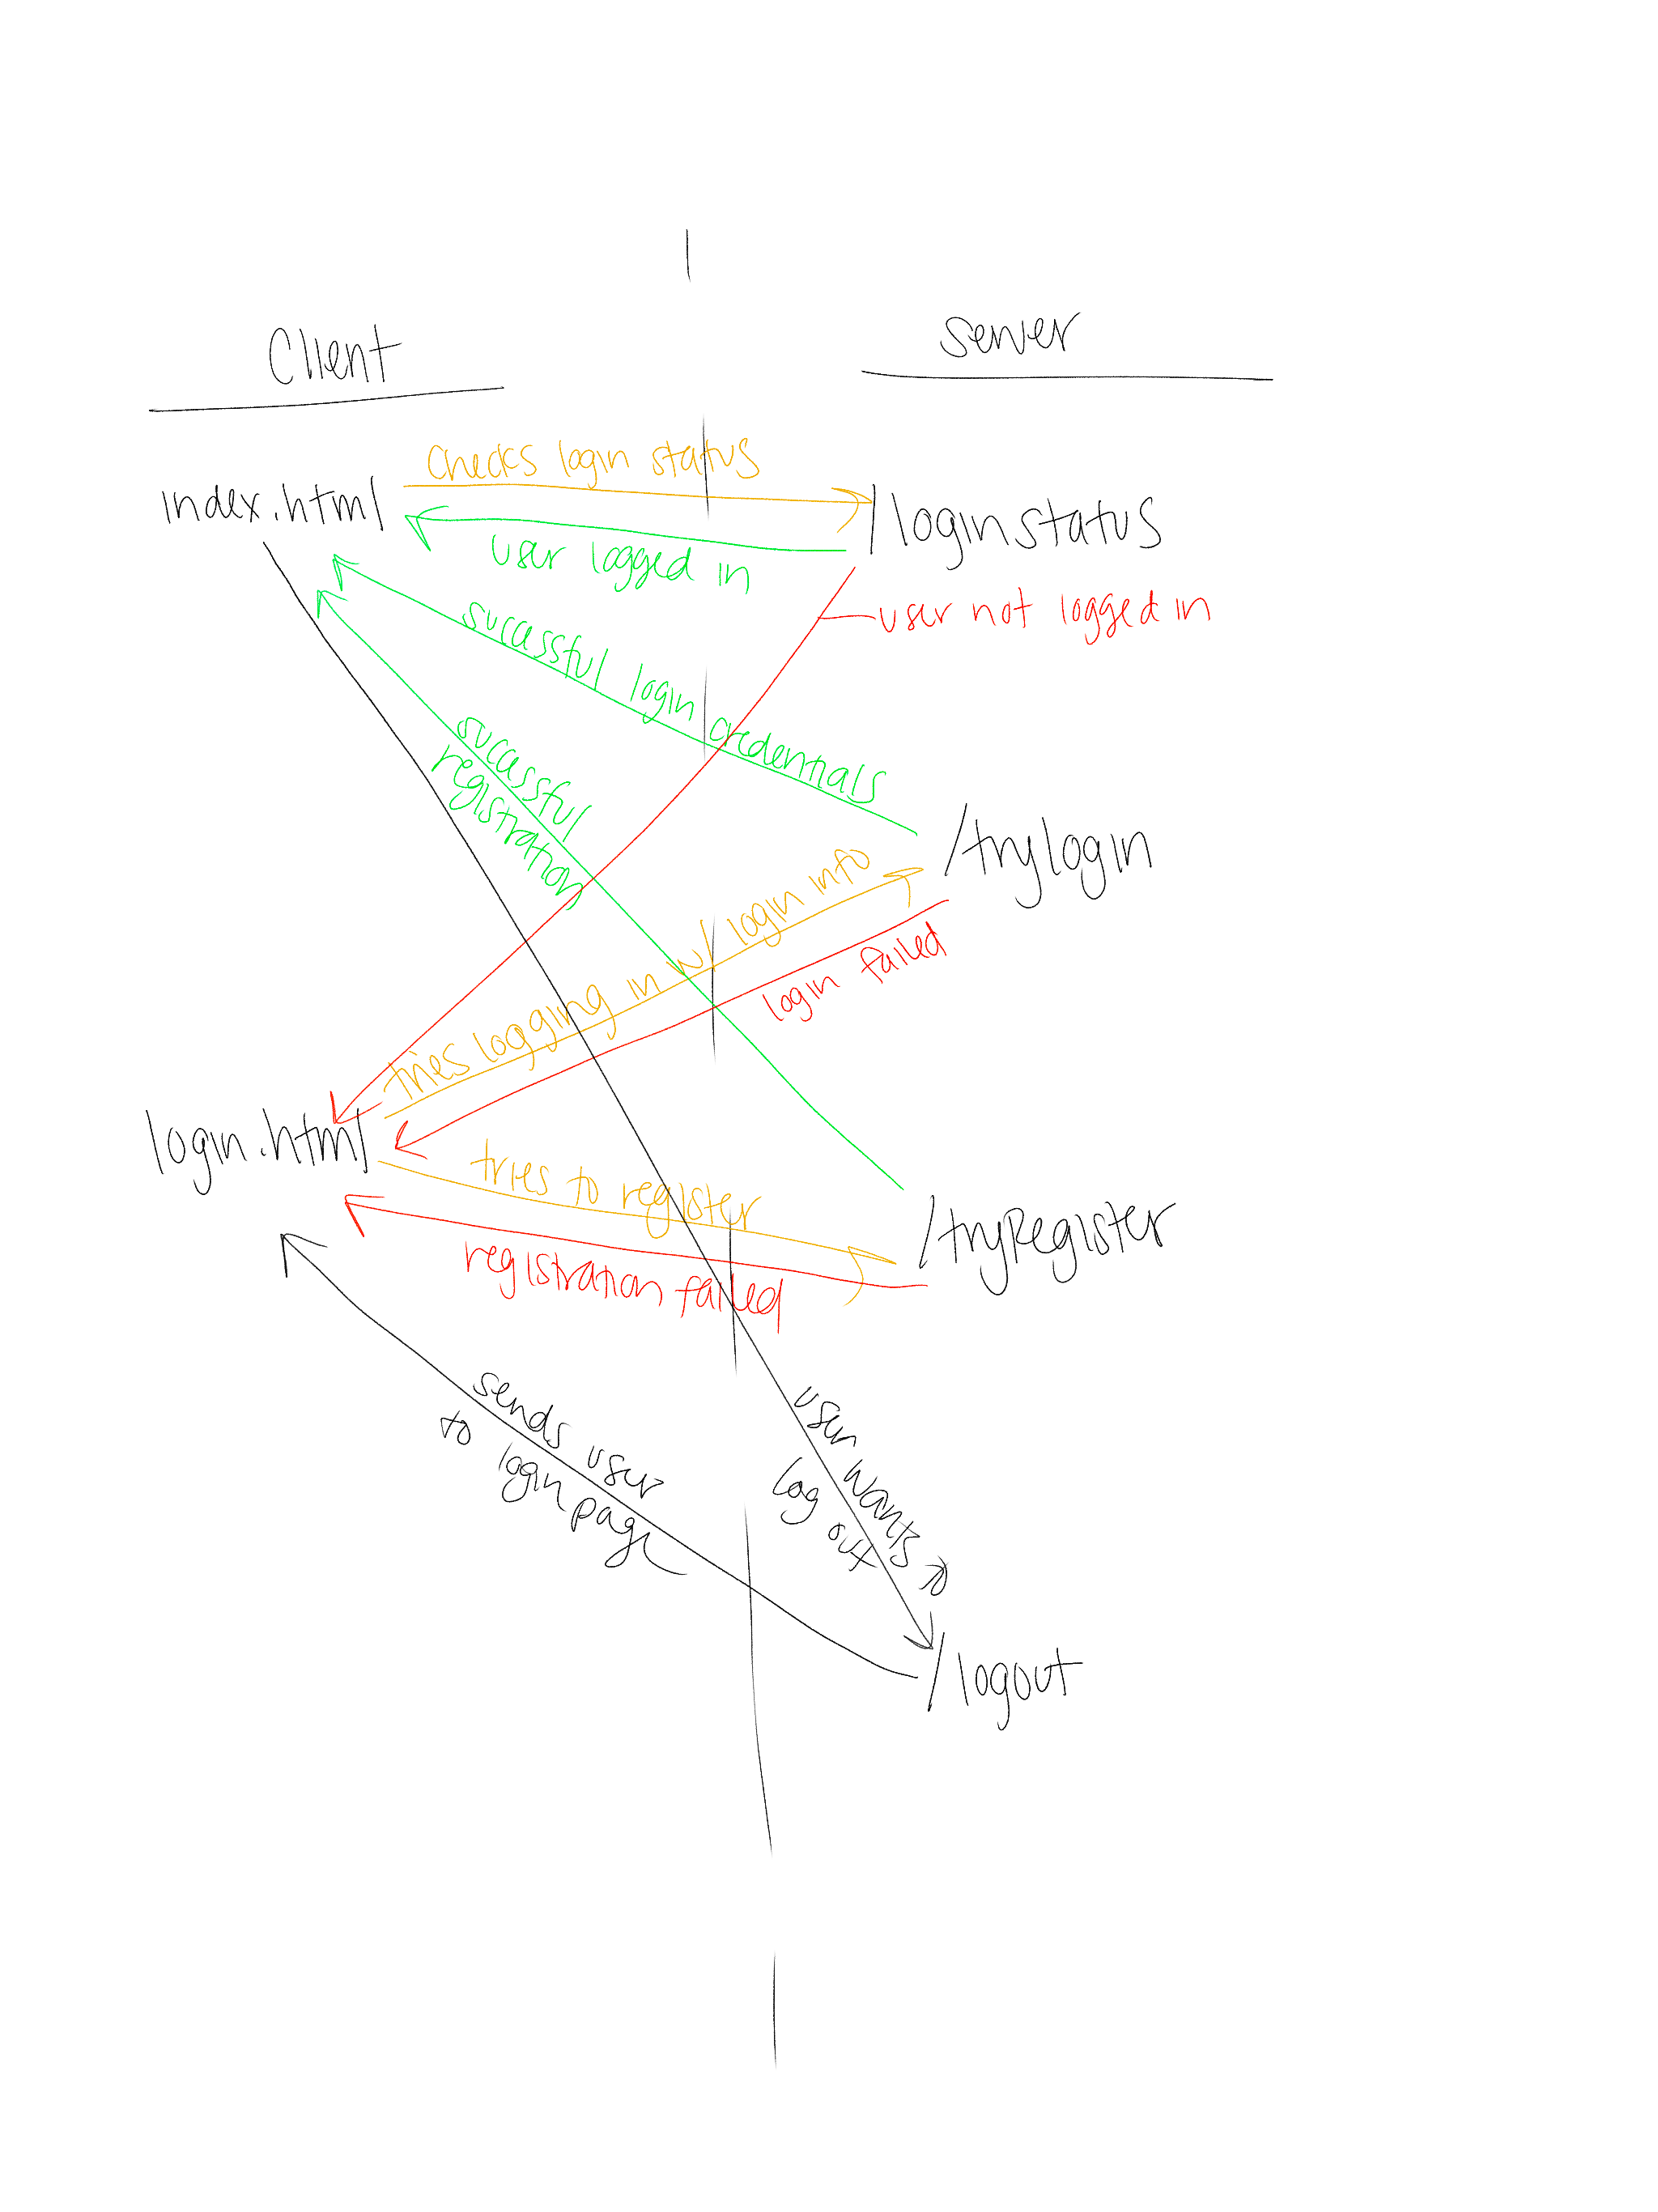 Client
Server
checks login status
index.html
/loginstatus
user logged in
user not logged in
successful login credentials
successful
registration
/trylogin
tries logging in w/ login info
login failed
login.html
tries to register
/tryRegister
registration failed
sends user
to login page
user wants to
log out
/logout